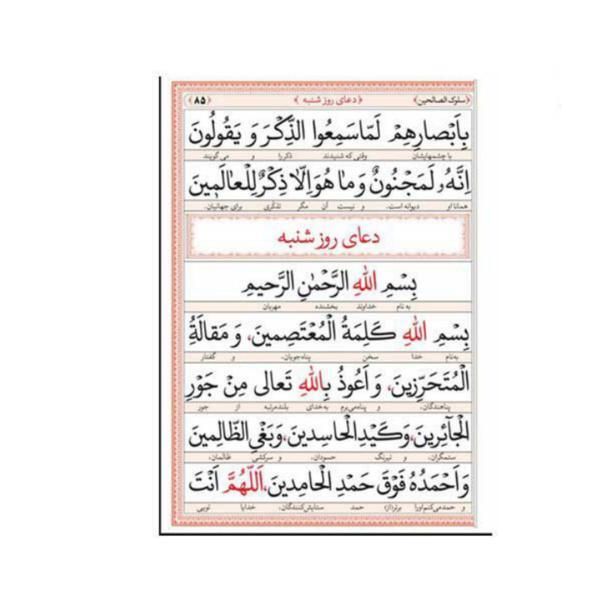 ﴿سلوک الصالحین﴾ ﴿دعای روز شنبه﴾ ﴿۸۵﴾
بِاَبْصارِهِمْ لَمّا سَمِعُوا الذِّکْرَ وَ یَقُولُونَ
با چشمهایشان وقتی که شنیدند ذکر را و می گویند
اِنَّهُ لَمَجْنُونٌ وَ ما هُوَ اِلّا ذِکْرٌ لِلْعالَمینَ
همانا او دیوانه است. و نیست آن مگر تذکّری برای جهانیان.
دعای روز شنبه
بِسْمِ اللّٰهِ الرَّحْمٰنِ الرَّحیمِ
به نام خداوند بخشنده مهربان
بِسْمِ اللّٰهِ کَلِمَةُ الْمُعْتَصِمینَ، وَ مَقالَةُ
به‌نام خدا سخن پناه‌جویان، و گفتار
الْمُتَحَرِّزینَ، وَ اَعُوذُ بِاللّٰهِ تَعالی مِنْ جَوْرِ
پناهندگان، و پناه می‌برم به‌خدای بلندمرتبه از جور
الْجآئِرینَ، وَ کَیْدِ الْحاسِدینَ، وَ بَغْیِ الظّالِمینَ
ستمگران، و نیرنگ حسودان، و سرکشی ظالمان،
وَ اَحْمَدُهُ فَوْقَ حَمْدِ الْحامِدینَ، اَللّٰهُمَّ اَنْتَ
و حمد می‌کنم‌او را برتر(از) حمد ستایش‌کنندگان، خدایا تویی